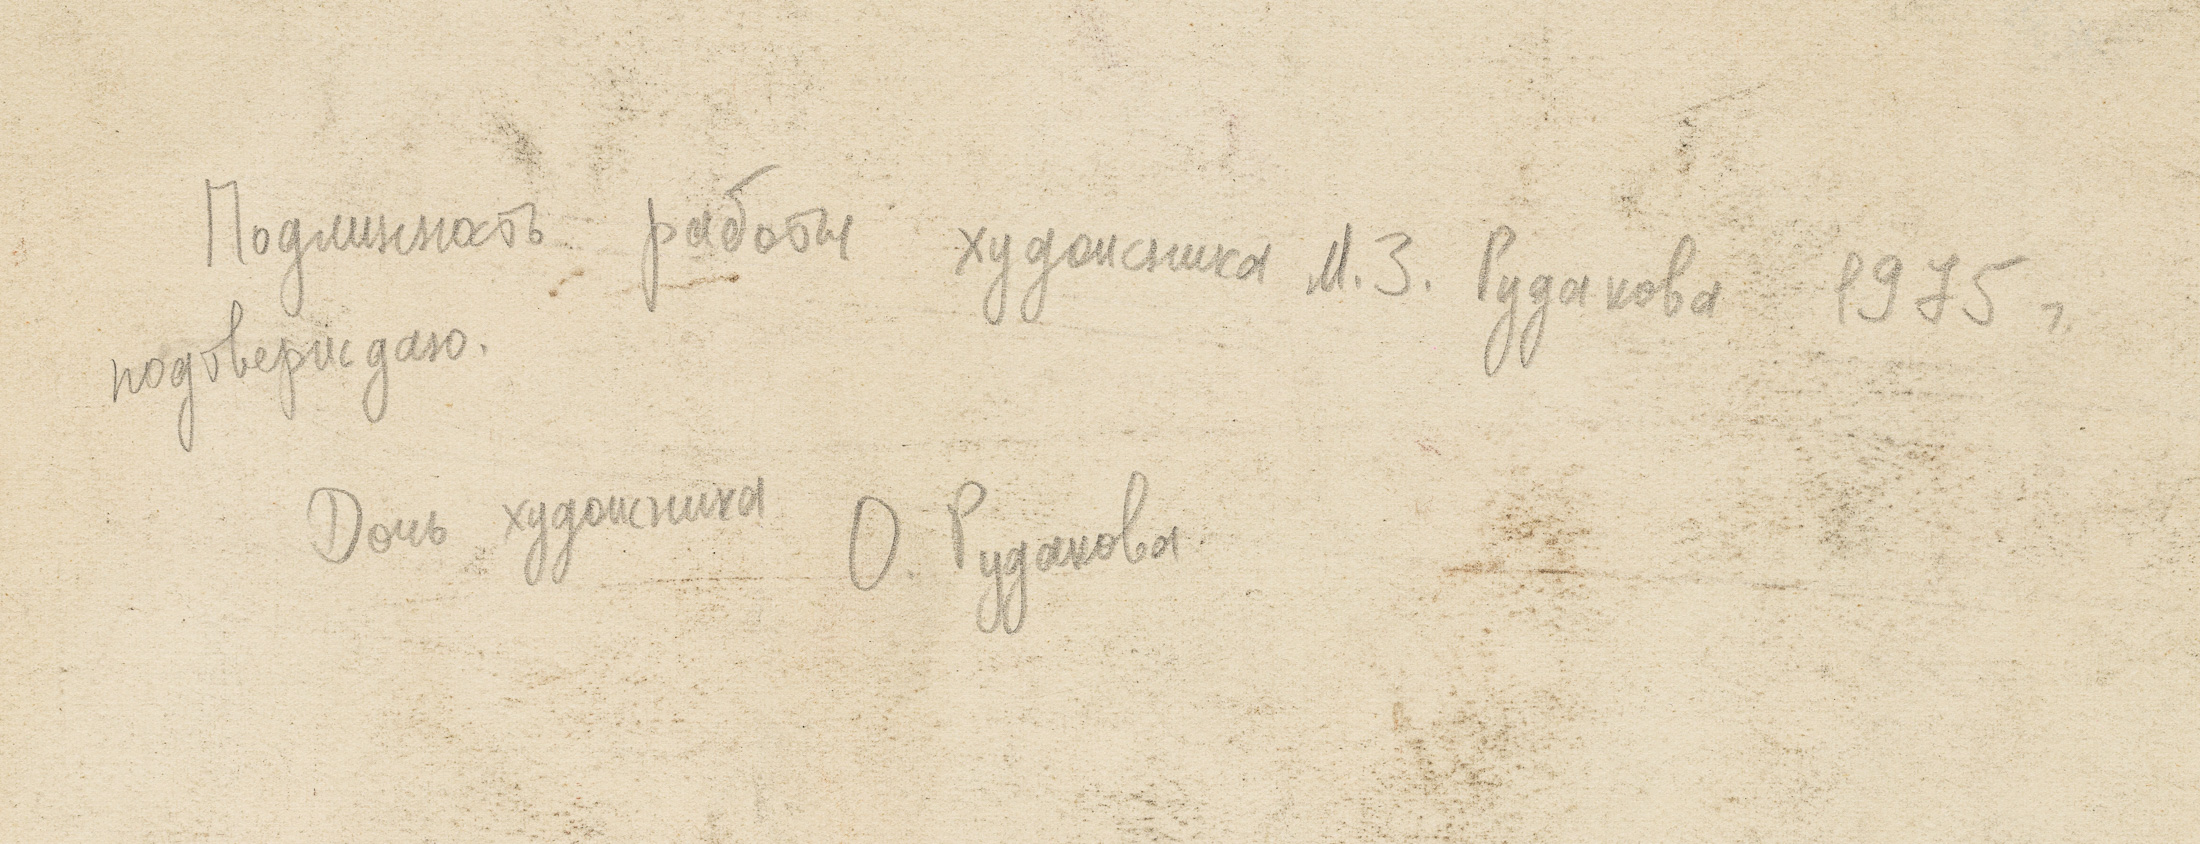 Подлинность работы художника М.З. Рудакова 1975,
подтверждаю.
Дочь художника О. Рудакова